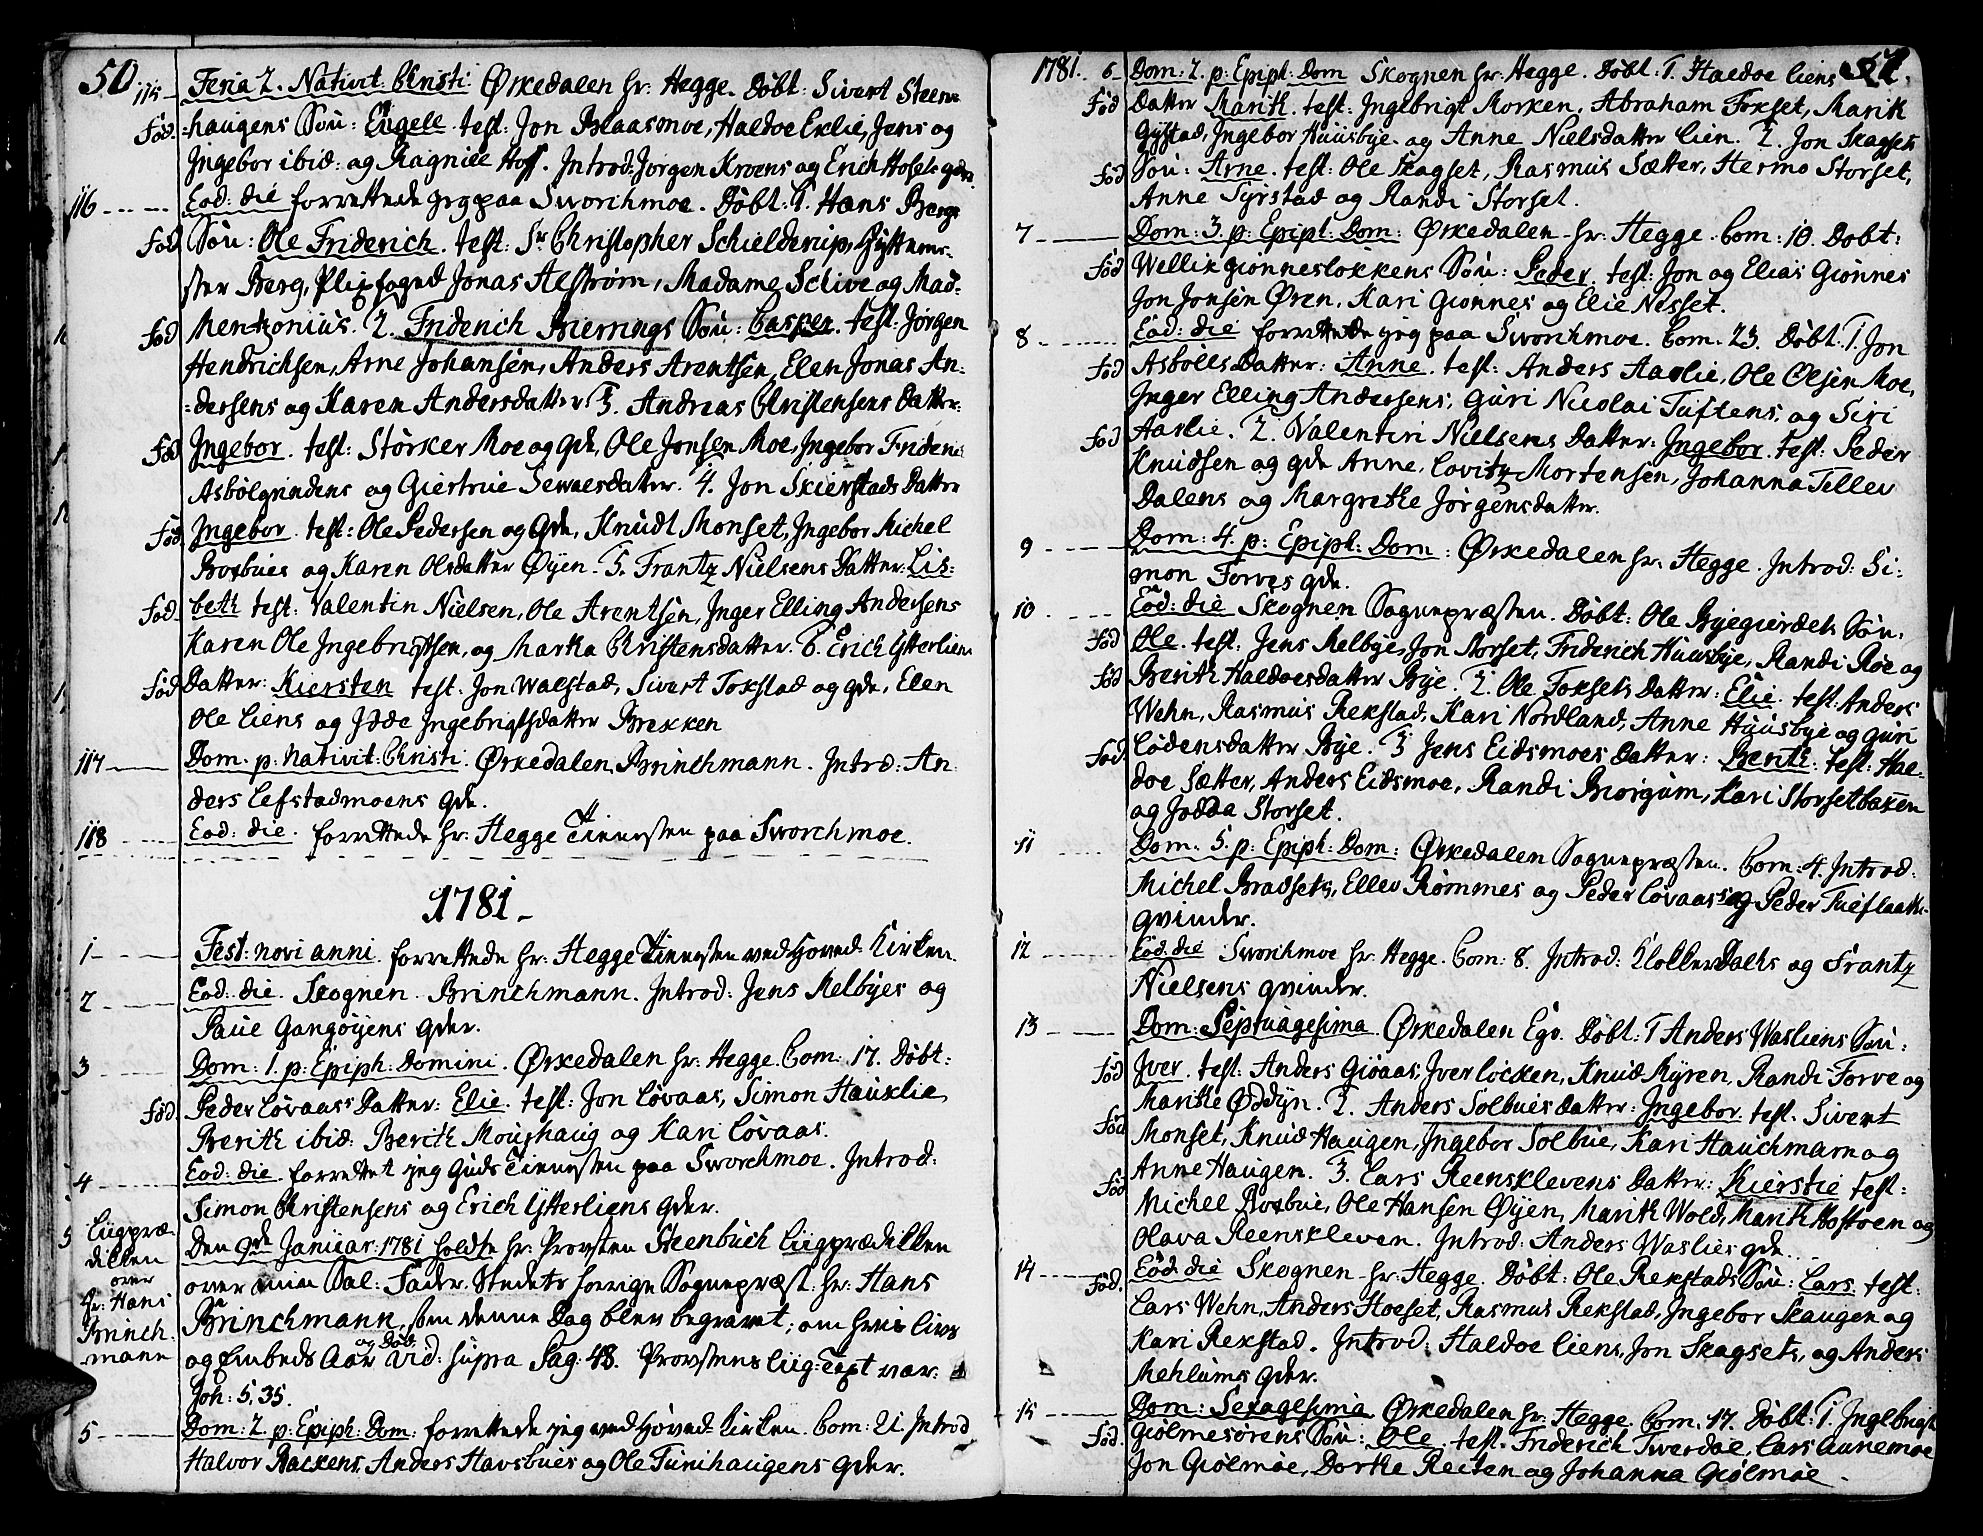 50.
115 - Feria 2. Nativit: Christi Ørkedalen hr: Hegge. Døbt: Sivert Steens-
Fød. haugens Søn: Engell. test: Jon Blaasmoe, Haldoe Eklie, Jens og
Ingebor ibid: og Ragnild Hoff. Introd: Jørgen Kroens og Erich Hofsets qdr.
116 Eod: die forrettede jeg paa Sworchmoe. Døbt: 1. Hans Bergs
Fød Søn: Ole Friderich. test: Sr. Christopher Schielderup, Hytteme-
ster Berg, Plixfoged Jonas Alstrøm, Madame Schive og Mad:
Fød Mentzonius. 2. Friderich Bierrings Søn: Casper. test: Jørgen
Hendrichsen, Arne Johansen, Anders Arentsen, Elen Jonas An-
dersens og Karen Andersdatter. 3. Andreas Christensens Datter:
Fød Ingebor. test: Størker Moe og qde, Ole Jonsen Moe, Ingebor Frideric
Asbølgrindens og Giertrue Sewaldsdatter. 4. Jon Skierstads Datter
Fød Ingebor. test: Ole Pedersen og qde, Knudt Monset, Ingebor Michel
Bosbues og Karen Olsdatter Øyen. 5. Frantz Nielsens Datter: Lis-
Fød. beth test: Valentin Nielsen, Ole Arentsen, Inger Elling Andersens
Karen Ole Ingebrigtsen, og Martha Christensdatter. 6. Erich Ytterliens
Fød Datter: Kiersten test: Jon Walstad, Sivert Fokstad og qde, Elen
Ole Liens og Idde Ingebrigtsdatter Brekken
117 Dom. p: Nativit: Christi. Ørkedalen, Brinchmann. Introd: An-
ders Lefstadmoens qde.
118 Eod: die. forrettede hr: Hegge Tienesten paa Sworchmoe.
1781.
1 Fest: novi anni. forrettede hr: Hegge Tienesten ved Hoved-Kirken.
2 Eod: die. Skognen. Brinchmann. Introd: Jens Melbyes og
Paul Gangøyens qder.
3 Dom: 1. p: Epiph: Domini. Ørkedalen hr: Hegge. Com: 17. Døbt:
Fød. Peder Løvaas's Datter: Elie. test: Jon Løvaas, Simon Hauklie,
Berith ibid: Berith Moushaug og Kari Løvaas.
4 Eod: die forrettet jeg Guds Tienesten paa Sworchmoe. Introd:
Simon Christensens og Erich Ytterliens qder.
5 Liigpræ- Den 9de Januar: 1781 holdte hr: Provsten Steenbuch Liigprædikken
dikken over min Sal: Fader. Stedets forrige Sognepræst hr: Hans
over
hr: Hans Brinchmann, som denne Dag blev begravet; om hvis Livs
Brinch- og Embeds Aar og Død vid: supra Pag: 48. Provstens Liig-Text var:
mann Joh: 5, 35.
5 Dom: 2. p: Epiph: Dom: forrettede jeg ved Hoved-Kirken. Com: 21. Introd
Halvor Backens, Anders Havsbues og Ole Tunihaugens qder.
1781. 51.
6 Dom: 2. p: Epiph: Dom Skognen hr: Hegge. Døbt: 1. Haldoe Liens
Fød Datter Marith. test: Ingebrigt Morken, Abraham Fokset, Marik
Gystad, Ingebor Huusbye. og Anne Nielsdatter Lien. 2. Jon Skagsets
Fød Søn: Arne. test: Ole Skagset, Rasmus Sætter, Hermo Storset,
Anne Syrstad og Randi Storset.
7 Dom: 3. p: Epiph: Dom: Ørkedalen hr: Hegge. Com: 10. Døbt:
Fød Wellix Giønnesløkkens Søn: Peder. test: Jon og Elias Giønnes
Jon Jonsen Øren, Kari Giønnes og Elie Nesset.
8 Eod: die forrettede jeg paa Sworchmoe. Com. 23. Døbt: 1. Jon
Fød Asbølls Datter: Anne. test: Anders Aaslie, Ole Olsen Moe,
Inger Elling Andersens, Guri Nicolai Tuftens, og Siri
Fød Aaslie. 2. Valentin Nielsens Datter: Ingebor. test: Peder
Knudsen og qde Anne, Lovitz Mortensen, Johanna Tellev
Dalens og Margrethe Jørgensdatter.
9 Dom: 4. p: Epiph: Dom: Ørkedalen hr: Hegge. Introd: Si-
mon Forves qde.
10 Eod: die Skognen Sognepræsten. Døbt: Ole Byegierdets Søn:
Fød Ole. test: Jens Melbye, Jon Storset, Friderich Huusbye, Randi Røe og
Fød Berith Haldoesdatter Bye. 2. Ole Foksets Datter: Elie. test: Anders
Wehn, Rasmus Rekstad, Kari Nordland, Anne Huusbye og Guri
Fød Lødensdatter Bye. 3 Jens Eidsmoes Datter: Berith: test: Hal-
doe Sætter, Anders Eidsmoe, Randi Biørgum, Kari Storsetbakken
og Jodda Storset.
11 Dom. 5. p: Epiph: Dom: Ørkedalen Sognepræsten. Com: 4. Introd:
Michel Bradsets, Ellev Rømmes og Peder Løvaas's og Peder Tufflaats
qvinder.
12 Eod: die Sworchmoe hr: Hegge. Com: 8. Introd: Kloller Daehs og Frantz
Nielsens qvinder.
13 Dom: Septuagesima Ørkedalen Ego. Døbt: 1 Anders Wasliens Søn:
Fød Iver. test: Anders Gioaas, Iver Løcken, Knud Myren, Randi Forve og
Marithe Øddyn. 2. Anders Solbues Datter: Ingebor. test. Sivert
Fød Monset, Knud Haugen, Ingebor Solbue, Kari Hauchmarn og
Anne Haugen. 3. Lars Reensklevens Datter: Kierstie test:
Fød Michel Bosbue, Ole Hansen Øyen, Marith Wold, Marith Hostoen og
Olava Reenskleven. Introd: Anders Waslies qde.
14 Fød. Eod: die Skognen hr: Hegge. Døbt: Ole Rekstads Søn: Lars. test:
Lars Wehn, Anders Hoeset, Rasmus Rekstad, Ingebor Skaugen og
Kari Rekstad. Introd: Haldoe Liens, Jon Skagsets, og Anders
Mehlums qder.
15 Dom: Sexagesima Ørkedalen hr: Hegge. Com. 17. Døbt: 1. Ingebrigt
Fød. Giølmesørens Søn: Ole. test. Friderich Twerdal, Lars Aunemoe
Jon Giølmøe, Dorthe Reiten og Johanna Giølmøe.